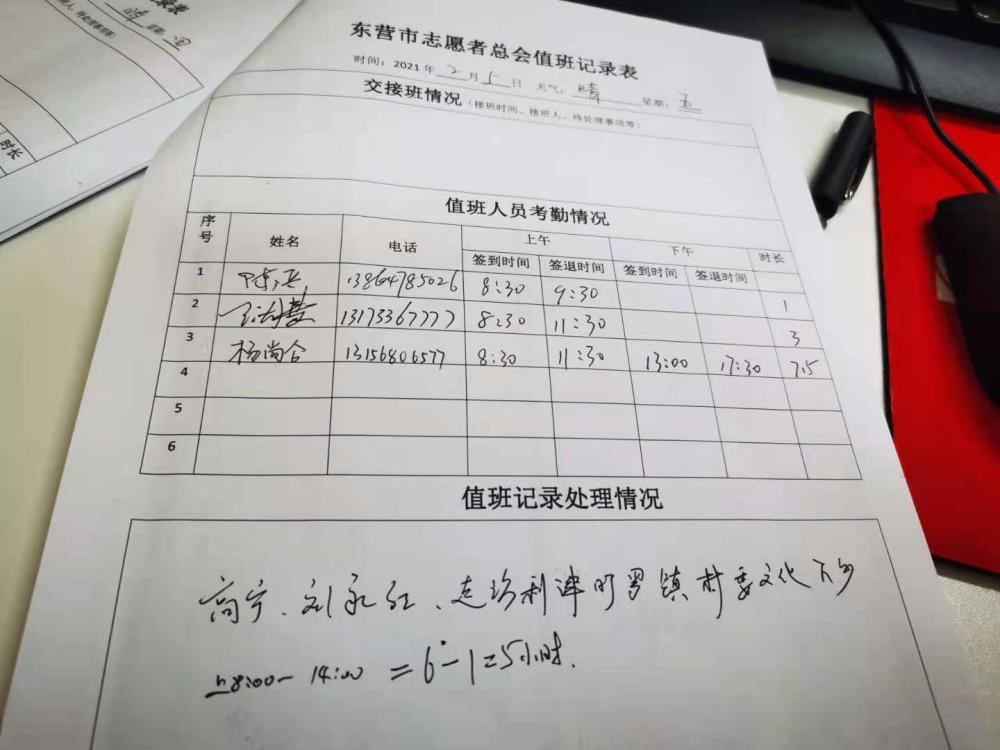 东营市志愿者总会值班记录表
时间：2021年2月5日 天气：晴 星期：五
交接班情况（接班时间、接班人、待处理事项等）
值班人员考勤情况
序号 姓名 电话 上午 下午 时长
签到时间 签退时间 签到时间 签退时间
1 13864785026 8:30 9:30 1
2 13173367777 8:30 11:30 3
3 杨尚合 13156806577 8:30 11:30 13:00 17:30 7.5
4
5
6
值班记录处理情况
高宁、刘永红、利津 罗镇村委文化下乡
上8:00-14:00=6-1=5小时.
录表
晴
时长